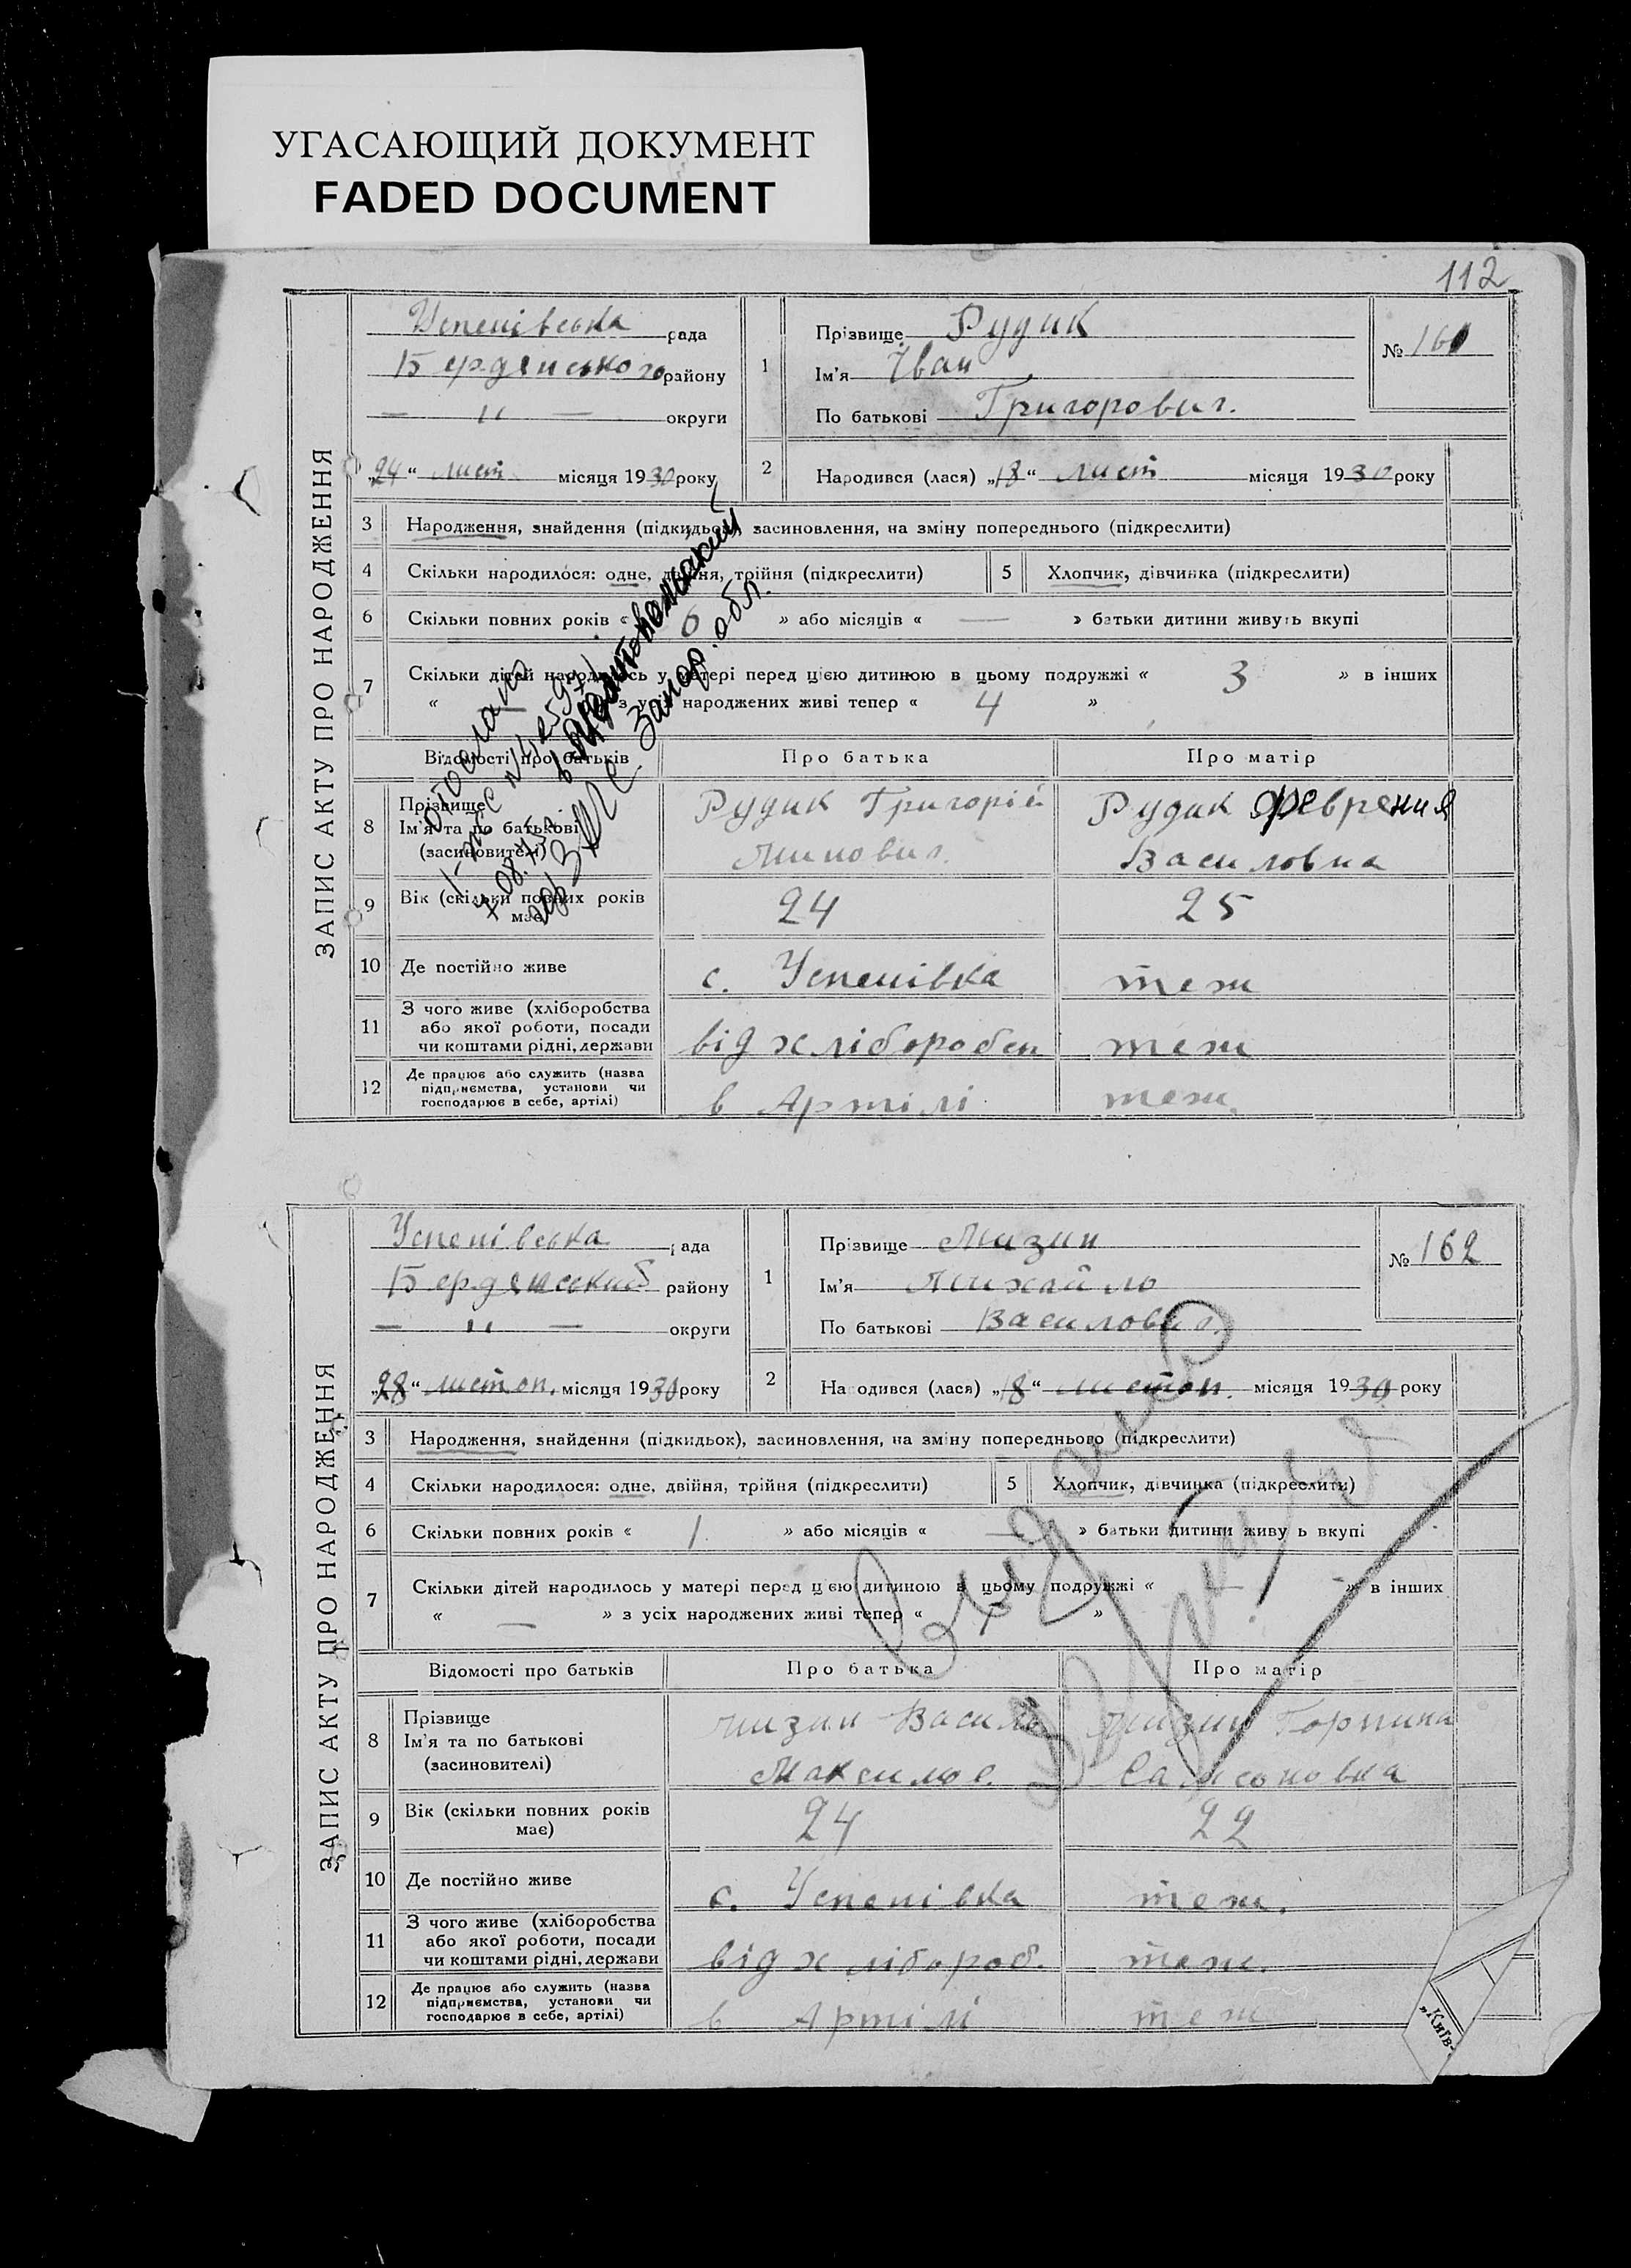 УГАСАЮЩИЙ ДОКУМЕНТ
FADED DOCUMENT
112
ЗАПИС АКТУ ПРО НАРОДЖЕННЯ
Успенівська рада
Бердянського району
— " — округи
„24“ лист. місяця 1930 року
1
Прізвище Рудик
Ім'я Іван
По батькові Григорович.
№ 161
2
Народився (лася) „18“ лист місяця 1930 року
3 Народження, знайдення (підкидьок), засиновлення, на зміну попереднього (підкреслити)
4 Скільки народилося: одне, двійня, трійня (підкреслити) 5 Хлопчик, дівчинка (підкреслити)
6 Скільки повних років « 6 » або місяців « — » батьки дитини живуть вкупі
7 Скільки дітей народилось у матері перед цією дитиною в цьому подружжі « 3 » в інших
« » з усіх народжених живі тепер « 4 »
Відомості про батьків Про батька Про матір
8 Прізвище
Ім'я та по батькові
(засиновителі)
Рудик Григорій
Минович.
Рудик Февренія
Василовна
9 Вік (скільки повних років
має)
24
25
10 Де постійно живе с. Успенівка теж
11 З чого живе (хліборобства
або якої роботи, посади
чи коштами рідні, держави
від хліборобства
теж
12 Де працює або служить (назва
підприємства, установи чи
господарює в себе, артілі)
в Артілі
теж.
отослано
Запор. обл.
ЗАПИС АКТУ ПРО НАРОДЖЕННЯ
Успенівська рада
Бердянський району
— " — округи
„28“ листоп. місяця 1930 року
1
Прізвище Мизин
Ім'я Михайло
По батькові Василович.
№ 162
2
Народився (лася) „18“ листоп. місяця 1930 року
3 Народження, знайдення (підкидьок), засиновлення, на зміну попереднього (підкреслити)
4 Скільки народилося: одне, двійня, трійня (підкреслити) 5 Хлопчик, дівчинка (підкреслити)
6 Скільки повних років « 1 » або місяців « — » батьки дитини живу ь вкупі
7 Скільки дітей народилось у матері перед цією дитиною в цьому подружжі « — » в інших
« — » з усіх народжених живі тепер « 1 »
Відомості про батьків Про батька Про матір
8 Прізвище
Ім'я та по батькові
(засиновителі)
Мизин Василь
Максимов.
Мизин Горпина
Самсоновна
9 Вік (скільки повних років
має)
24
22
10 Де постійно живе с. Успенівка теж.
11 З чого живе (хліборобства
або якої роботи, посади
чи коштами рідні, держави
від хлібороб.
теж.
12 Де працює або служить (назва
підприємства, установи чи
господарює в себе, артілі)
в Артілі
теж
„Київ-